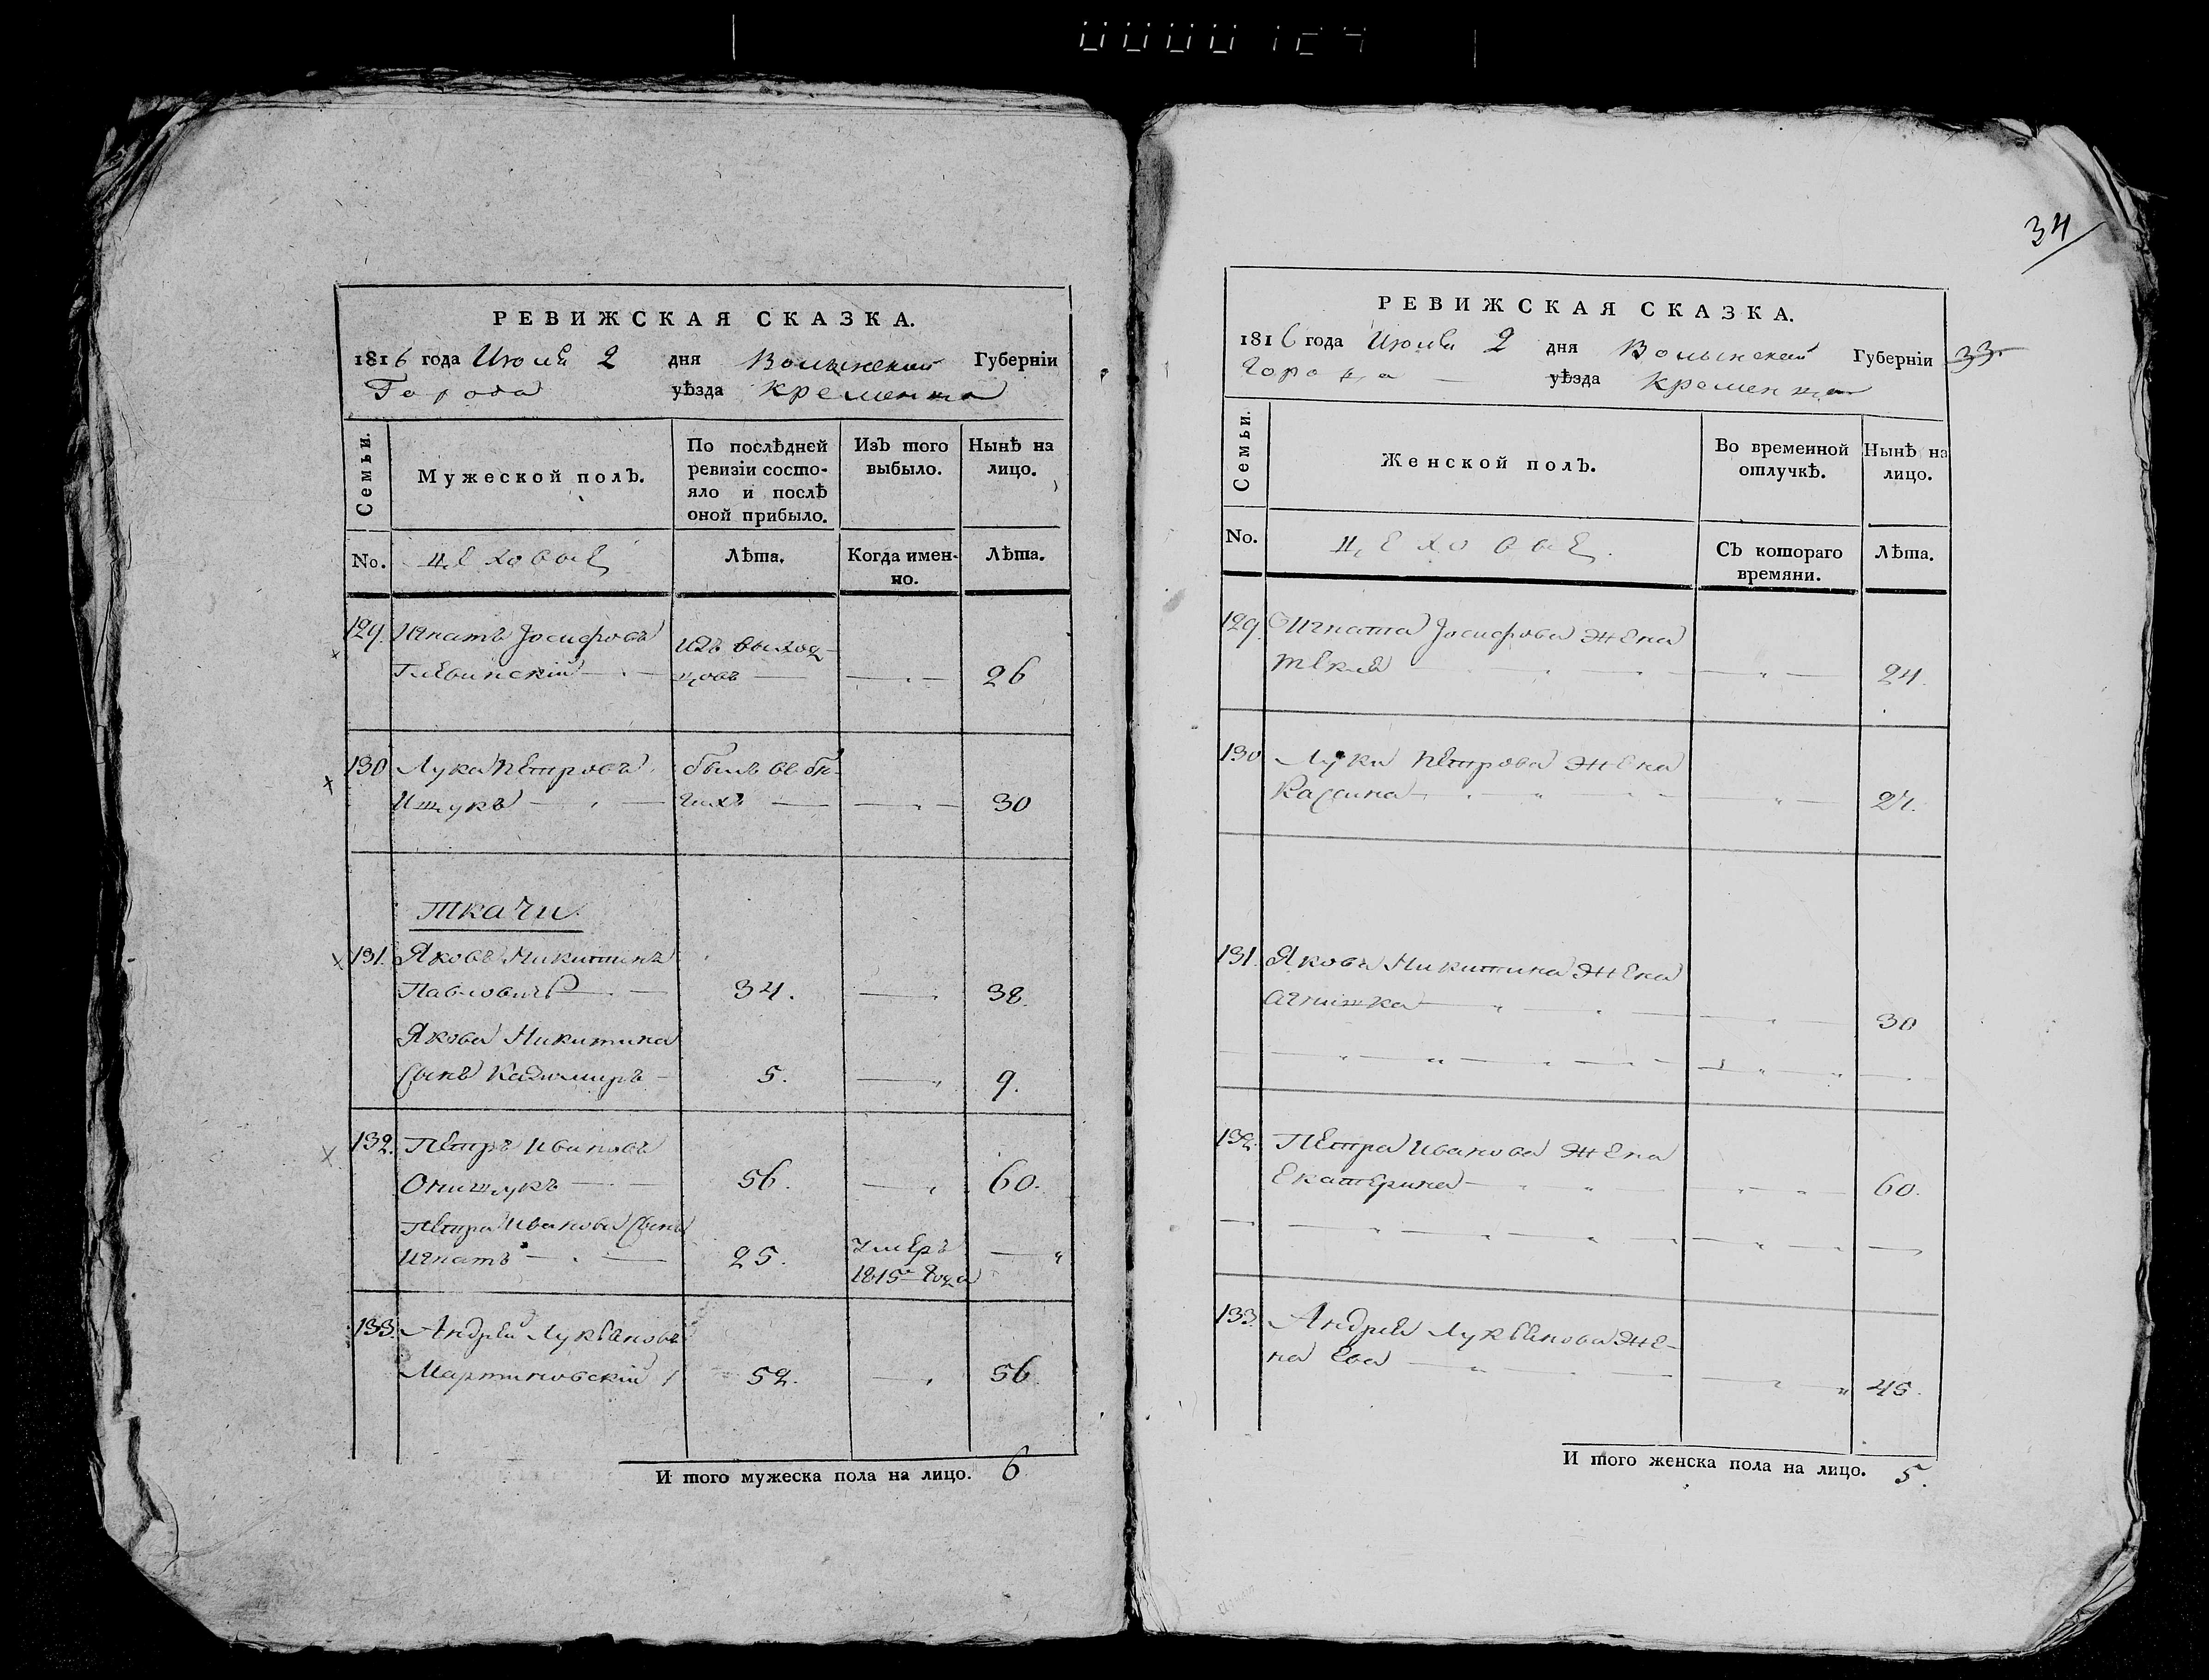 34
РЕВИЖСКАЯ СКАЗКА.
1816 года Июля 2 дня Волынской Губерніи
Города уѣзда Кременца
Семьи.
Мужеской полЪ.
По послѣдней ревизіи состо-
яло и послѣ оной прибыло.
ИзЪ того выбыло.
Нынѣ на лицо.
No.
Цеховые
Лѣта.
Когда имен-
но.
Лѣта.
129. Игнатъ Іосифовъ Изъ выход-
Глевинскій цовъ 26
130 Лука Петровъ былъ въ бѣ-
Ищукъ гахъ 30
Ткачи.
131. Яковъ Никитинъ
Павловичъ 34. 38.
Якова Никитина
Сынъ Казимиръ 5. 9.
132. Петръ Ивановъ
Онищукъ 56. 60.
Петра Иванова Сынъ Умеръ
Игнатъ 25. 1815го Года
133. Андрей Лукьяновъ
Мартиновскій 52. 56
И того мужеска пола на лицо. 6
РЕВИЖСКАЯ СКАЗКА.
1816 года Июля 2 дня Волынской Губерніи 33
Города уѣзда Кременца
Семьи.
Женской полЪ.
Во временной
отлучкѣ.
Нынѣ на
лицо.
No.
Цеховые.
СЪ котораго
времяни.
Лѣта.
129. Игната Іосифова Жена
Текля 24.
130 Луки Петрова Жена
27.
131. Якова Никитина Жена
Агнишка 30
132. Петра Иванова Жена
Екатерина 60.
133. Андрея Лукьянова Же-
на Ева 45.
И того женска пола на лицо. 5.